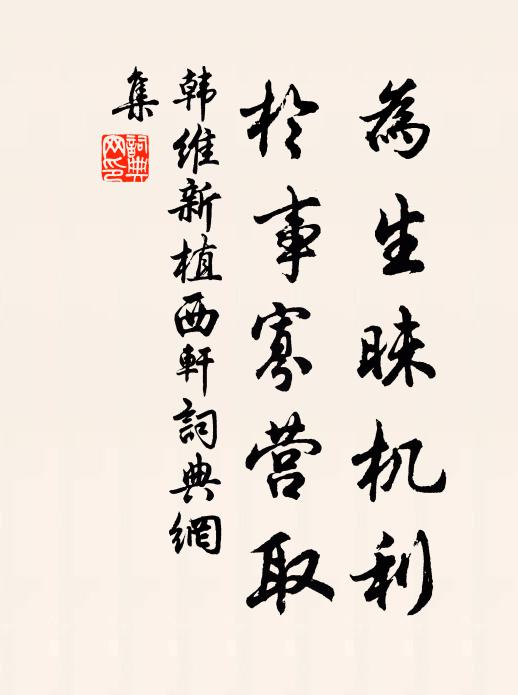 為生昧机利
於事寡营取
韩維新植西軒詞典網
集
詞典
网印